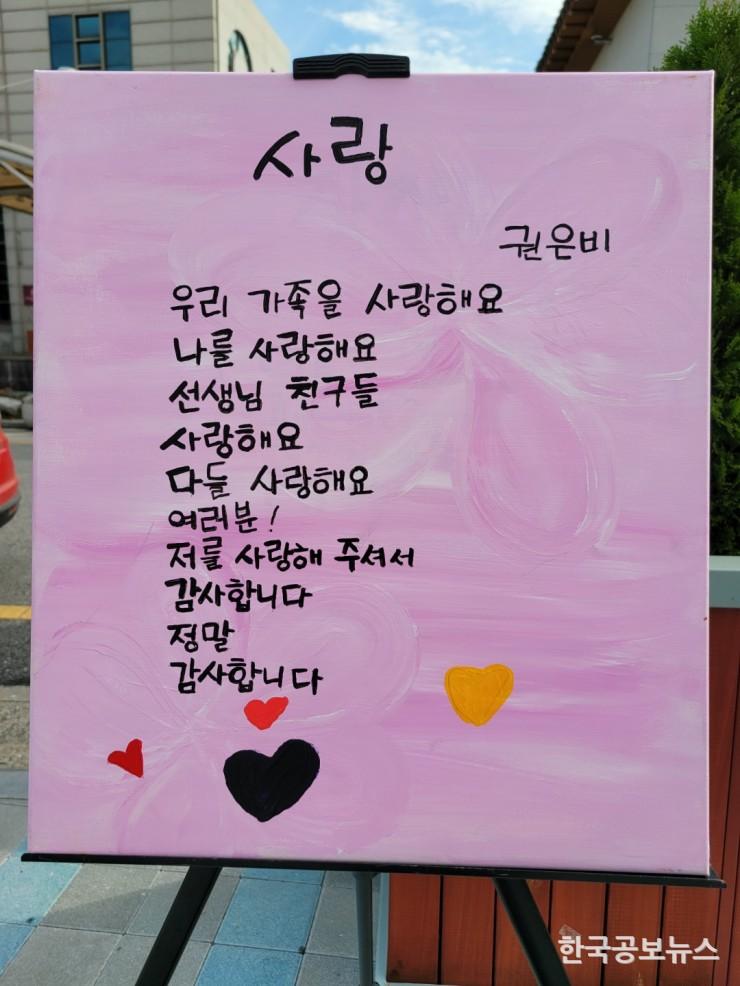 사랑
권은비
우리 가족을 사랑해요
나를 사랑해요
선생님 친구들
사랑해요
다들 사랑해요
여러분!
저를 사랑해 주셔서
감사합니다
정말
감사합니다
한국공보뉴스